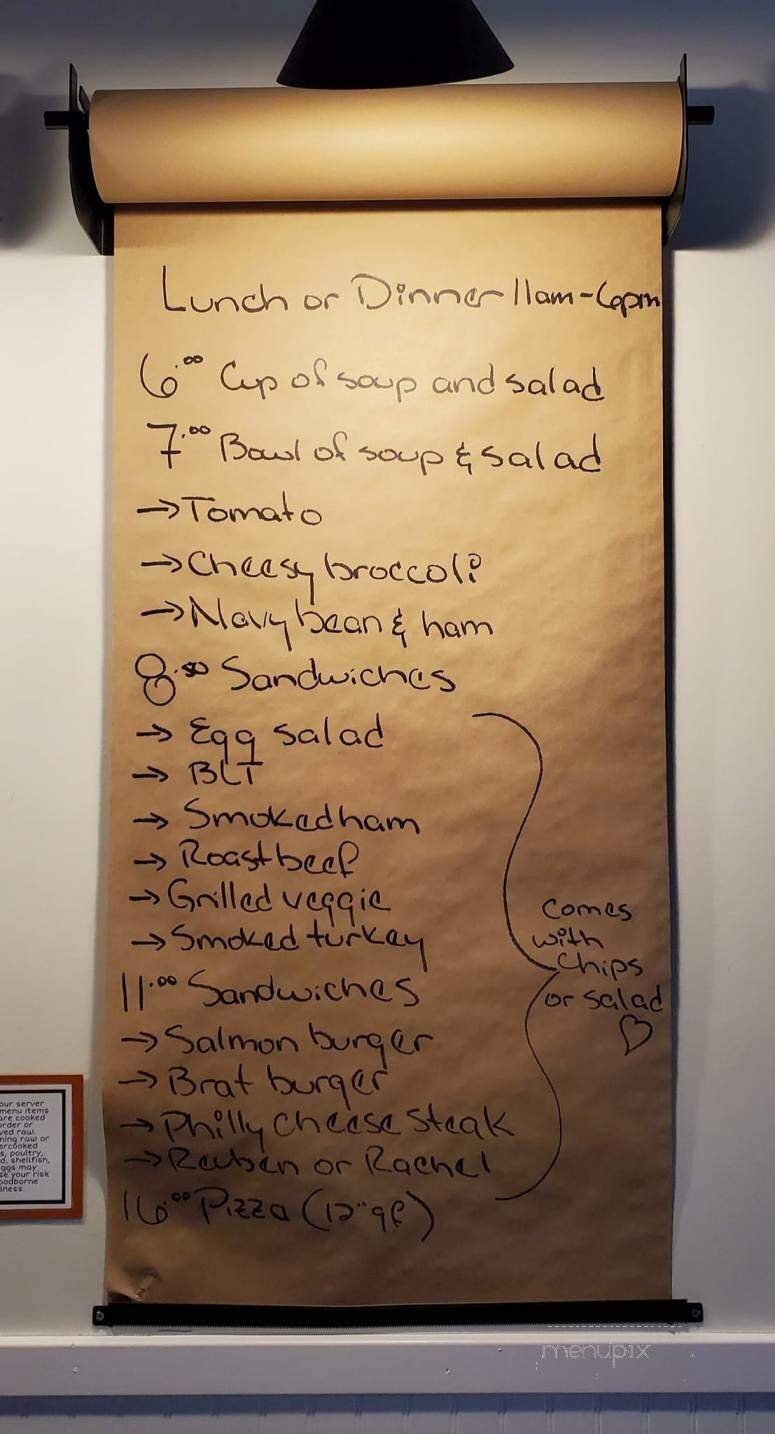 Lunch or Dinner 11am-6pm
6.00 Cup of soup and salad
7.00 Bowl of soup & salad
→Tomato
→Cheesy broccoli
→Navy bean & ham
8.50 Sandwiches
→ Egg salad
→ BLT
→ Smoked ham
→ Roast beef
→Grilled veggie
→Smoked turkey
comes
with
chips
or salad
♡
11.00 Sandwiches
→Salmon burger
→Brat burger
→Philly cheese steak
→Reuben or Rachel
16.00 Pizza (12" gf)
our server
menu items
are cooked
order or
ved raw.
ning raw or
ercooked
s, poultry,
d, shellfish,
ggs may
se your risk
oodborne
lness.
menupix